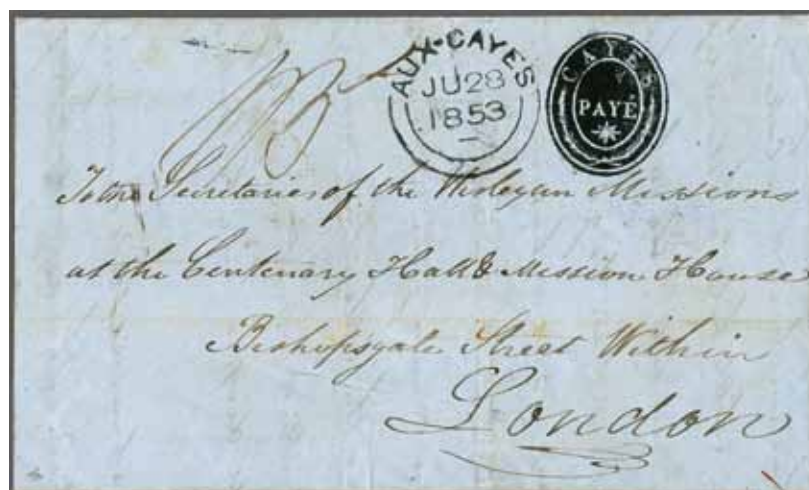 AUX-CAYES
JU 28
1853
CAYES
PAYÉ
To the Secretaries of the Wesleyan Missions
at the Centenary Hall & Mission House
Bishopsgate Street Within
London